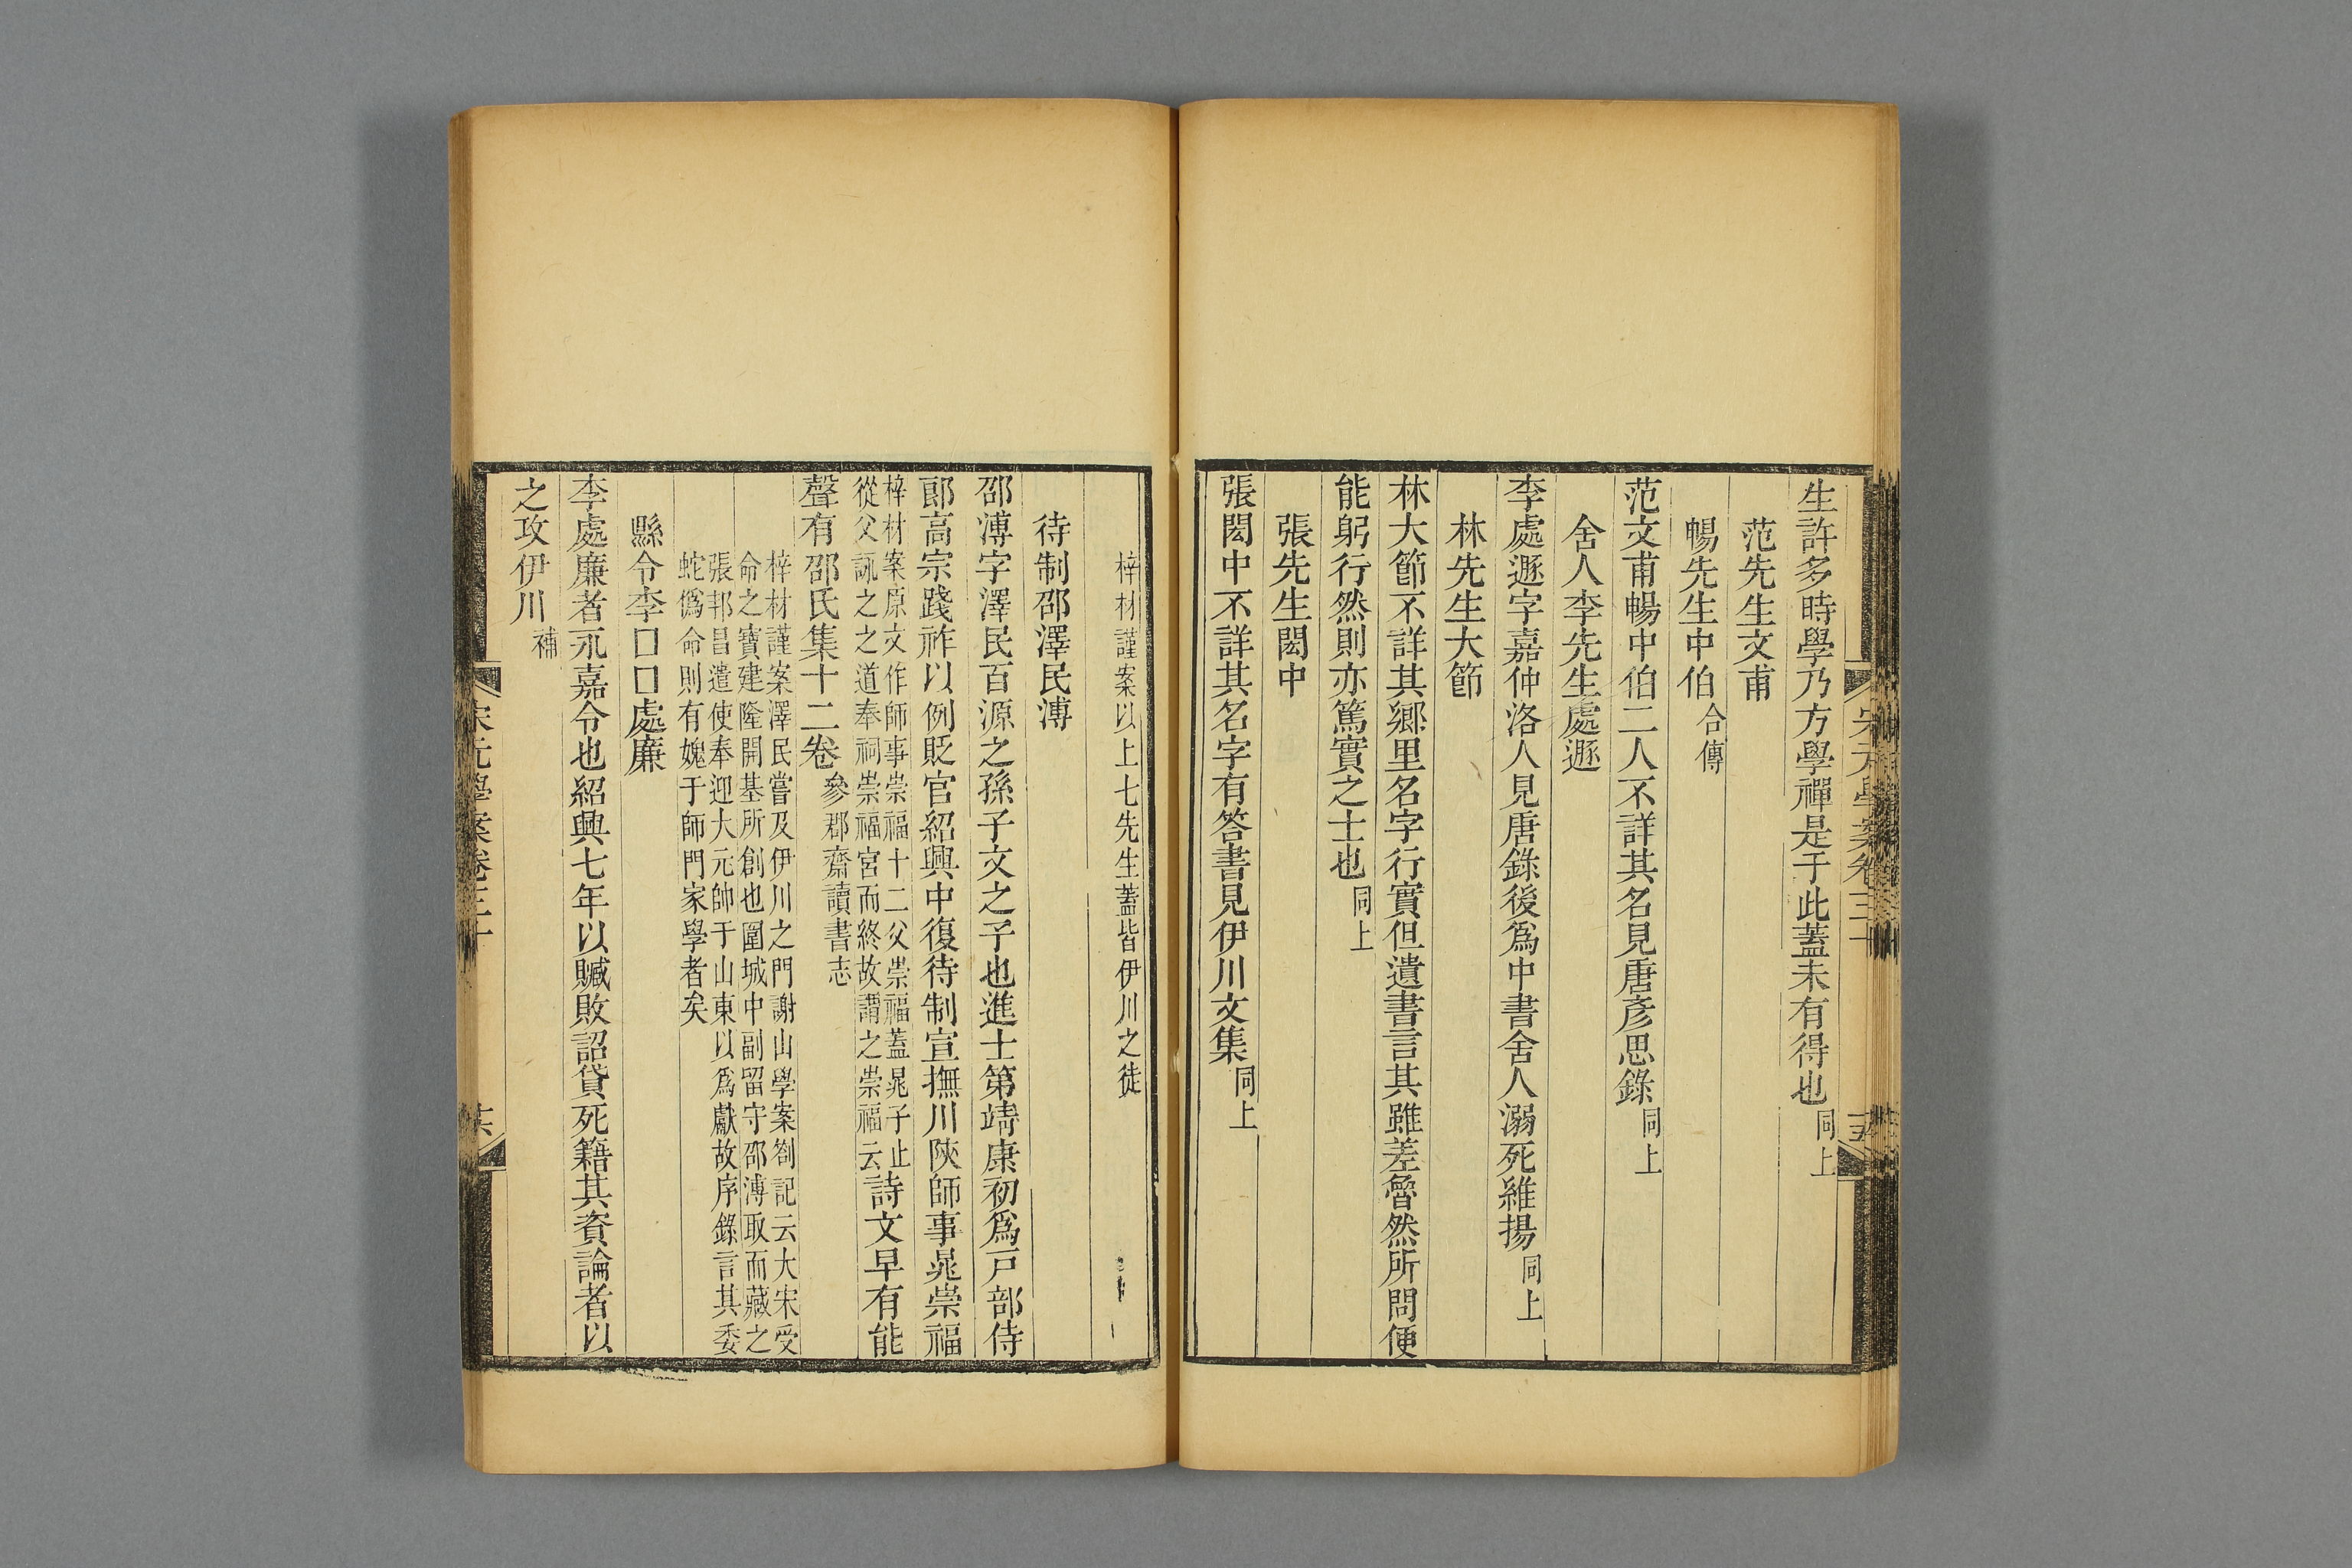 宋元學案卷三十
十五
生許多時學乃方學禪是于此蓋未有得也同上
范先生文甫
暢先生中伯合傳
范文甫暢中伯二人不詳其名見唐彥思錄同上
舍人李先生處遯
李處遯字嘉仲洛人見唐錄後爲中書舍人溺死維揚同上
林先生大節
林大節不詳其鄉里名字行實但遺書言其雖差魯然所問便
能躬行然則亦篤實之士也同上
張先生閎中
張閎中不詳其名字有答書見伊川文集同上
梓材謹案以上七先生蓋皆伊川之徒
待制邵澤民溥
邵溥字澤民百源之孫子文之子也進士第靖康初爲戸部侍
郎高宗踐祚以例貶官紹興中復待制宣撫川陝師事晁崇福
梓材案原文作師事崇福十二父崇福蓋晁子止
從父詠之之道奉祠崇福宮而終故謂之崇福云
詩文早有能
聲有邵氏集十二卷參郡齋讀書志
梓材謹案澤民嘗及伊川之門謝山學案劄記云大宋受
命之寶建隆開基所創也圍城中副留守邵溥取而藏之
張邦昌遣使奉迎大元帥于山東以爲獻故序錄言其委
蛇僞命則有媿于師門家學者矣
縣令李□□處廉
李處廉者永嘉令也紹興七年以贓敗詔貸死籍其資論者以
之攻伊川補
宋元學案卷三十
十六